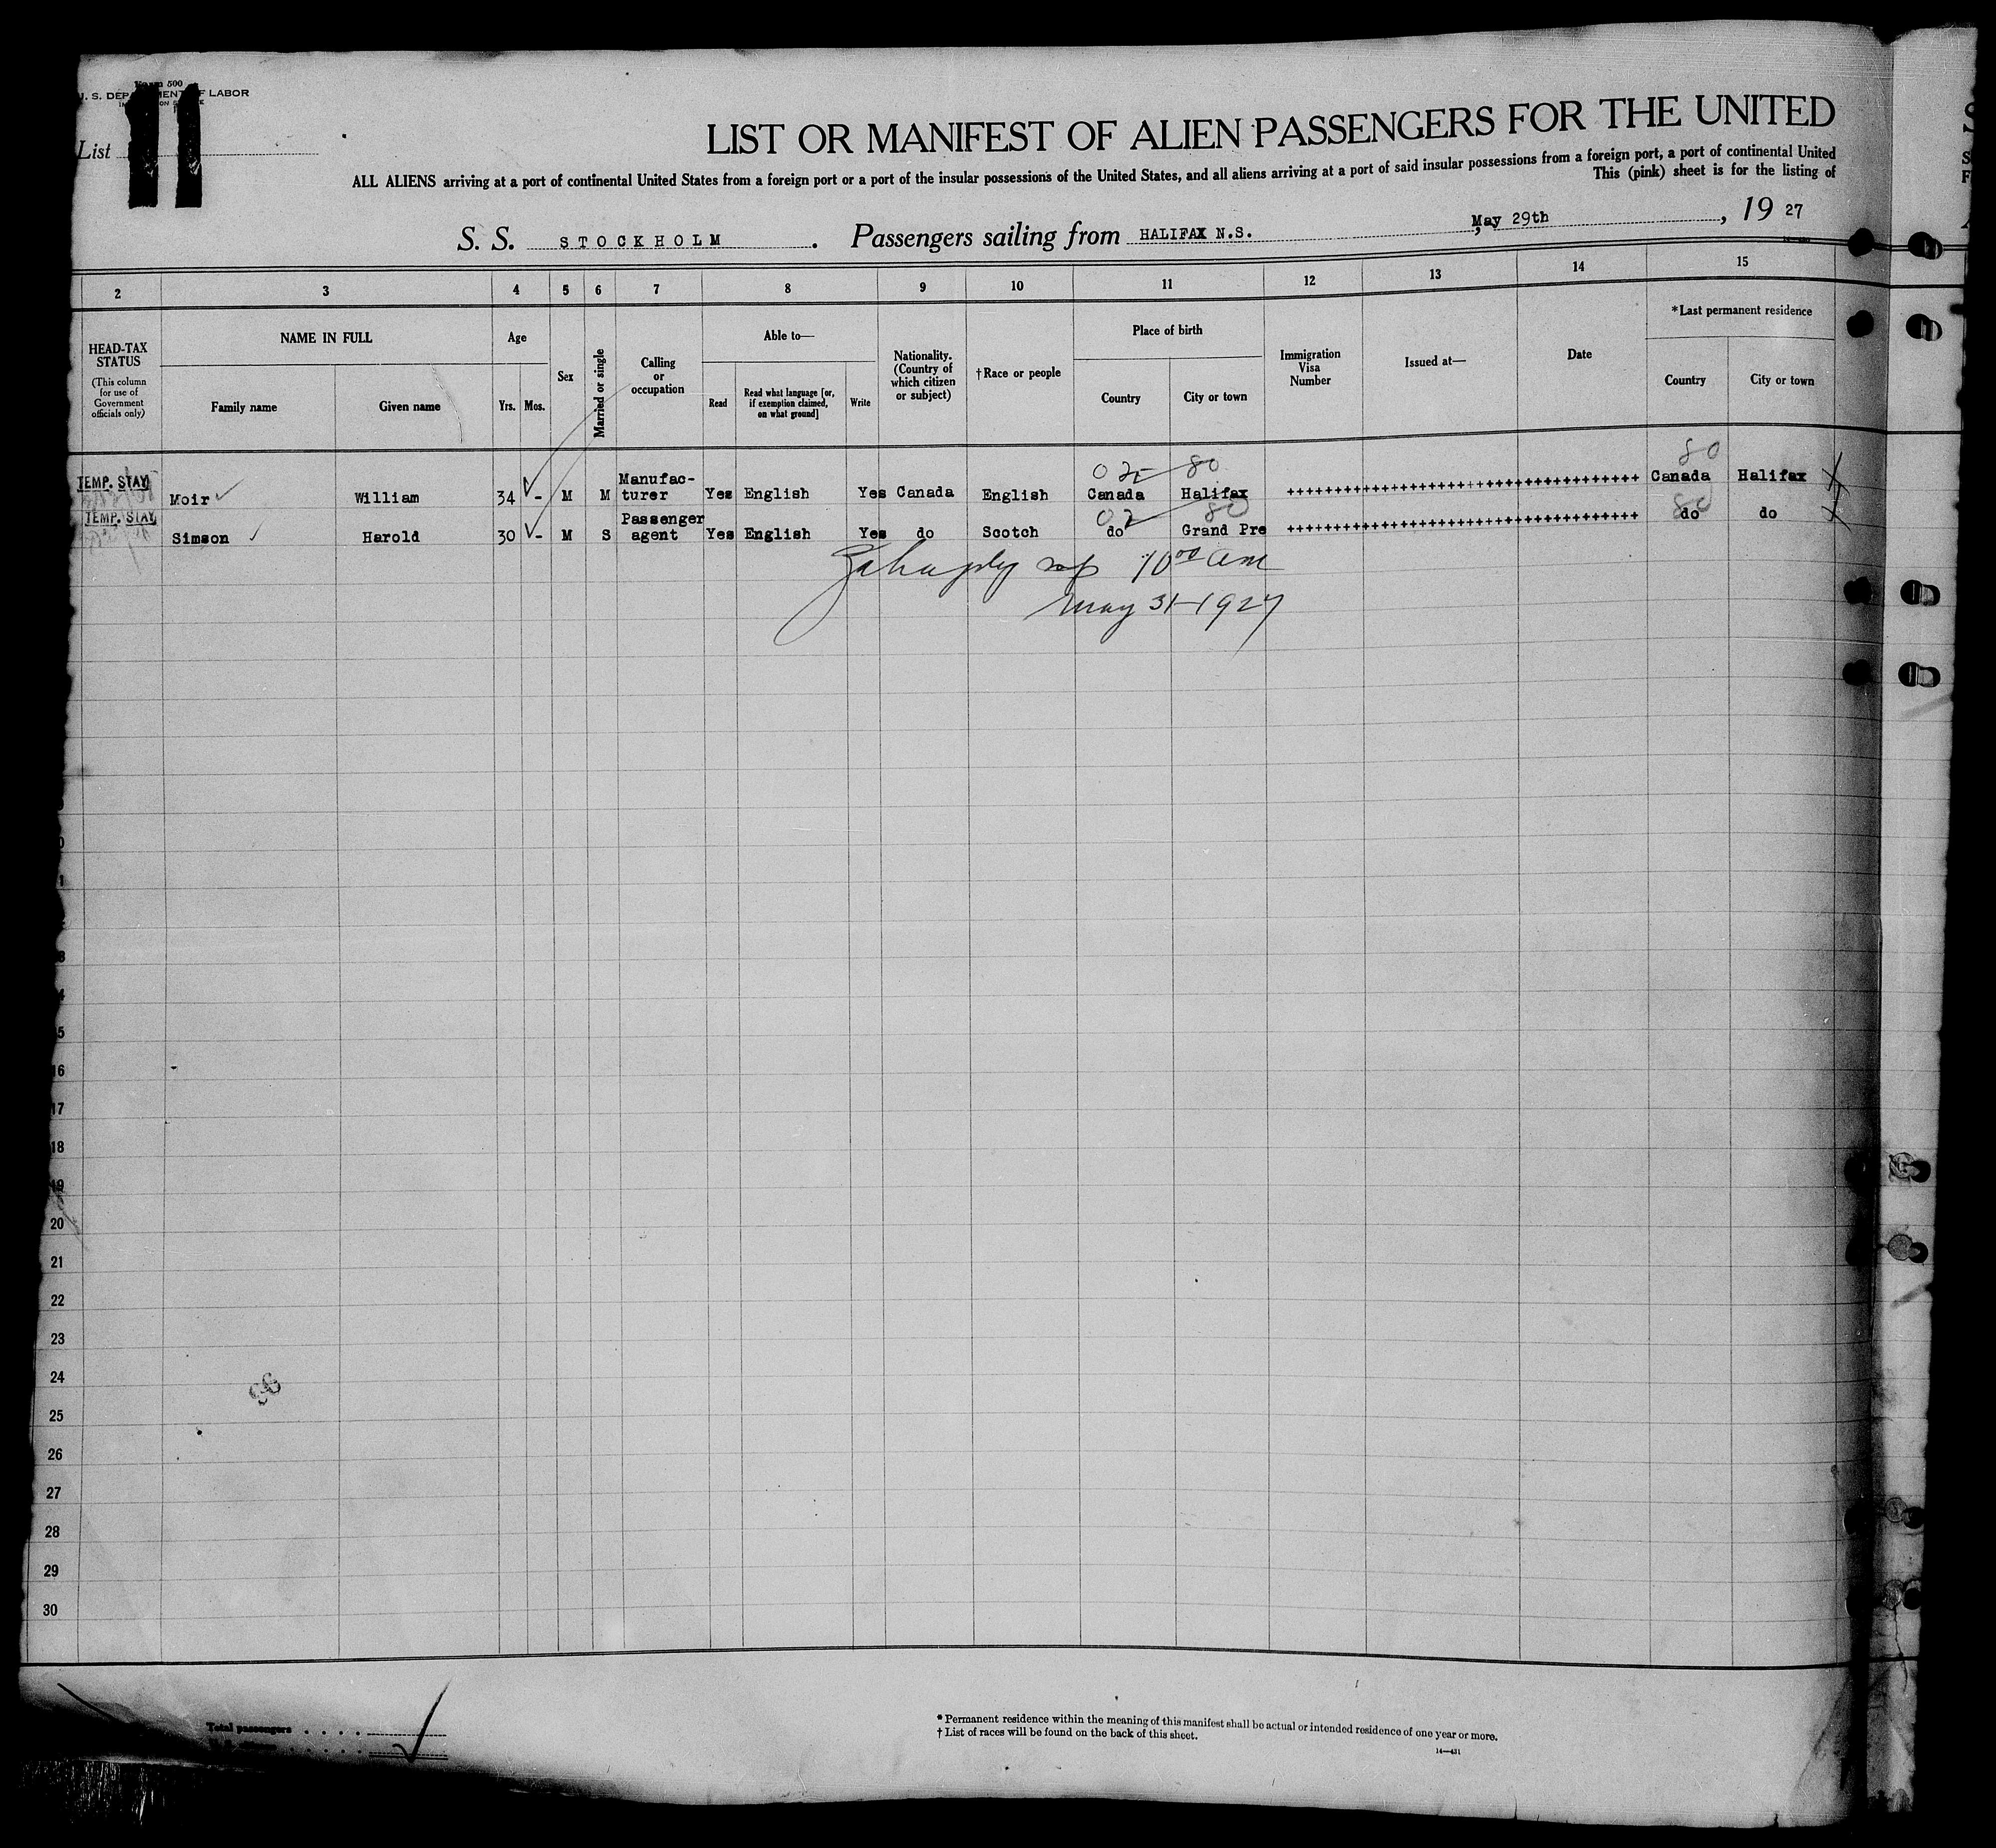 Form 500
U. S. DEPARTMENT OF LABOR
List 11
LIST OR MANIFEST OF ALIEN PASSENGERS FOR THE UNITED
ALL ALIENS arriving at a port of continental United States from a foreign port or a port of the insular possessions of the United States, and all aliens arriving at a port of said insular possessions from a foreign port, a port of continental United
This (pink) sheet is for the listing of
S. S. STOCKHOLM . Passengers sailing from HALIFAX N.S. May 29th , 19 27
2 3 4 5 6 7 8 9 10 11 12 13 14 15
HEAD-TAX STATUS (This column for use of Government officials only)
NAME IN FULL
Family name Given name
Age
Yrs. Mos.
Sex
Married or single
Calling or occupation
Able to—
Read
Read what language [or, if exemption claimed, on what ground]
Write
Nationality. (Country of which citizen or subject)
†Race or people
Place of birth
Country City or town
Immigration Visa Number
Issued at—
Date
*Last permanent residence
Country City or town
02 80 80
TEMP. STAY Moir William 34 - M M Manufac-turer Yes English Yes Canada English Canada Halifax ++++++++++++++++++++++++++++++++++++++ Canada Halifax
02 80 80
TEMP. STAY Simson Harold 30 - M S Passenger agent Yes English Yes do Scotch do Grand Pre ++++++++++++++++++++++++++++++++++++++ do do
10 00 am
May 31-1927
3
4
5
16
17
18
19
20
21
22
23
24
25
26
27
28
29
30
Total passengers . . . .
*Permanent residence within the meaning of this manifest shall be actual or intended residence of one year or more.
†List of races will be found on the back of this sheet.
14—431